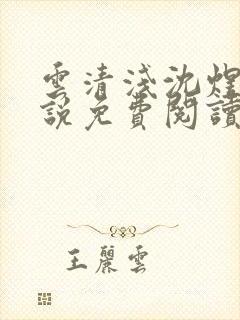 雲清淺沈煌
說免費閱讀
王麗雲